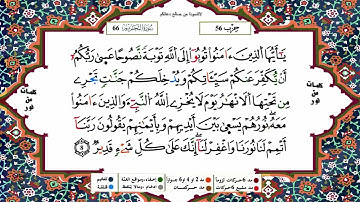 حزب 56
سورة التحريم 66
يَٰٓأَيُّهَا ٱلَّذِينَ ءَامَنُواْ تُوبُوٓاْ إِلَى ٱللَّهِ تَوۡبَةٗ نَّصُوحًا عَسَىٰ رَبُّكُمۡ
أَن يُكَفِّرَ عَنكُمۡ سَيِّـَٔاتِكُمۡ وَيُدۡخِلَكُمۡ جَنَّٰتٖ تَجۡرِي
مِن تَحۡتِهَا ٱلۡأَنۡهَٰرُ يَوۡمَ لَا يُخۡزِي ٱللَّهُ ٱلنَّبِيَّ وَٱلَّذِينَ ءَامَنُواْ
مَعَهُۥۖ نُورُهُمۡ يَسۡعَىٰ بَيۡنَ أَيۡدِيهِمۡ وَبِأَيۡمَٰنِهِمۡ يَقُولُونَ رَبَّنَآ
أَتۡمِمۡ لَنَا نُورَنَا وَٱغۡفِرۡ لَنَآۖ إِنَّكَ عَلَىٰ كُلِّ شَيۡءٖ قَدِيرٞ ٨
كلمات من نور
كلمات من نور